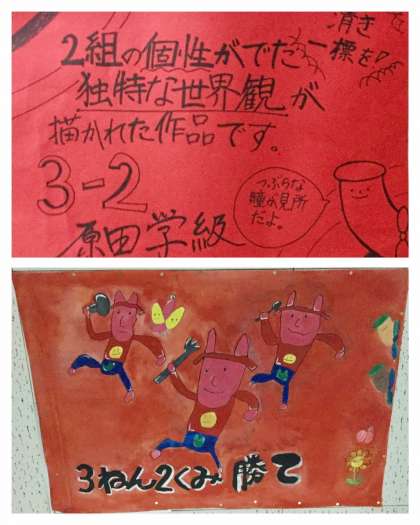 清き
一標を!
2組の個性がでた
独特な世界観が
描かれた作品です。
3-2
原田学級
つぶらな
瞳が見所
だよ。
3ねん2くみ 勝て